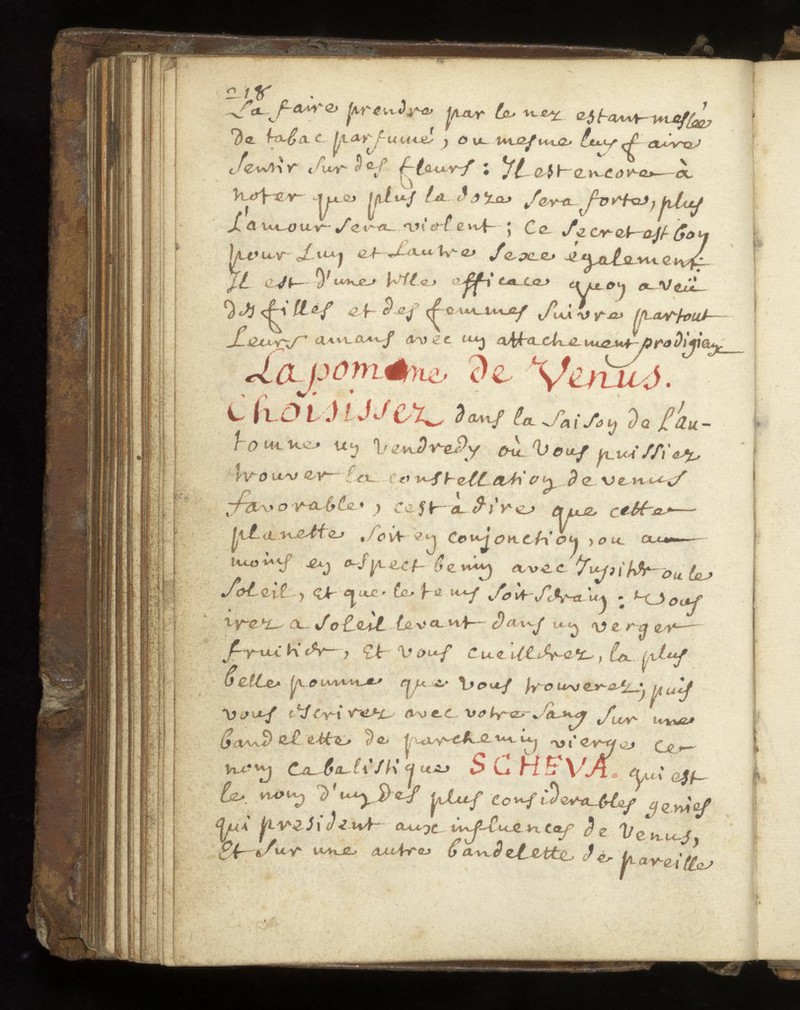 218
La faire prendre par le nez estant meslée
de tabac parfumé, ou mesme luy faire
sentir sur des fleurs : Il est encore à
noter que plus la doze sera forte, plus
L'amour sera violent ; Ce secret est bon
pour Luy et Lautre sexe également.
Il est d'une telle efficace quon a veü
des filles et des femmes suivre partout
Leurs amans avec un attachement prodigieux
La pomme de Venus.
Choisissez dans la saison de L'au-
tomne un Vendredy où Vous puissiez
trouver la constellation de venus
favorable, cest à dire que cette
planette soit en conjonction, ou au
moins en aspect benin avec Jupiter ou le
Soleil, et que le tems soit serain : Vous
irez a Soleil levant dans un verger
fruitier, Et vous cueillerez, la plus
belle pomme que vous trouverez; puis
vous escrirez avec votre sang sur une
bandelette de parchemin vierge ce
nom cabalistique SCHEVA. qui est
le nom d'un des plus considerables genies
qui president aux influences de Venus,
Et sur une autre bandelette de pareille